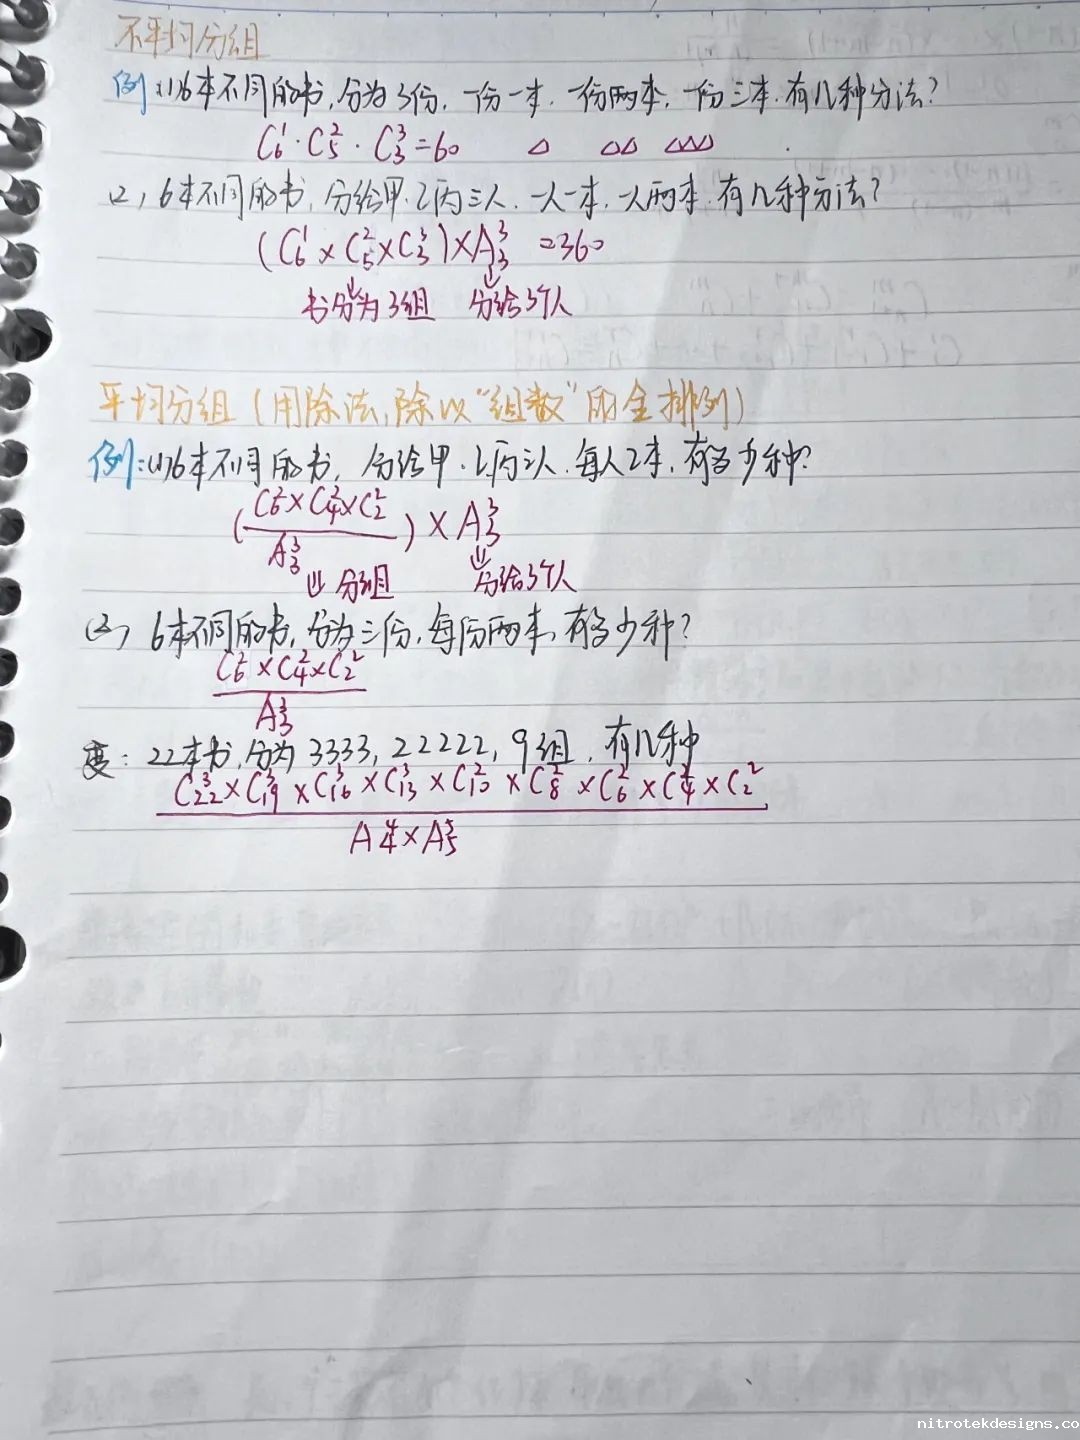 不平均分组
例:(1)6本不同的书,分为3份,一份一本,一份两本,一份三本.有几种分法?
C₆¹·C₅²·C₃³=60 △ △△ △△△
(2),6本不同的书,分给甲.乙丙三人.一人一本,一人两本.有几种分法?
(C₆¹×C₅²×C₃³)×A₃³ =360
书分为3组 分给3个人
平均分组(用除法,除以"组数"的全排列)
例:(1)6本不同的书,分给甲.乙丙三人.每人2本,有多少种?
(C₆²×C₄²×C₂²/A₃³)×A₃³
⇓分组 分给3个人
(2),6本不同的书,分为三份,每份两本,有多少种?
C₆²×C₄²×C₂²
A₃³
:22本书,分为3333,22222,9组,有几种
C₂₂³×C₁₉³×C₁₆³×C₁₃³×C₁₀²×C₈²×C₆²×C₄²×C₂²
A₄⁴×A₅⁵
nitrotekdesigns.co